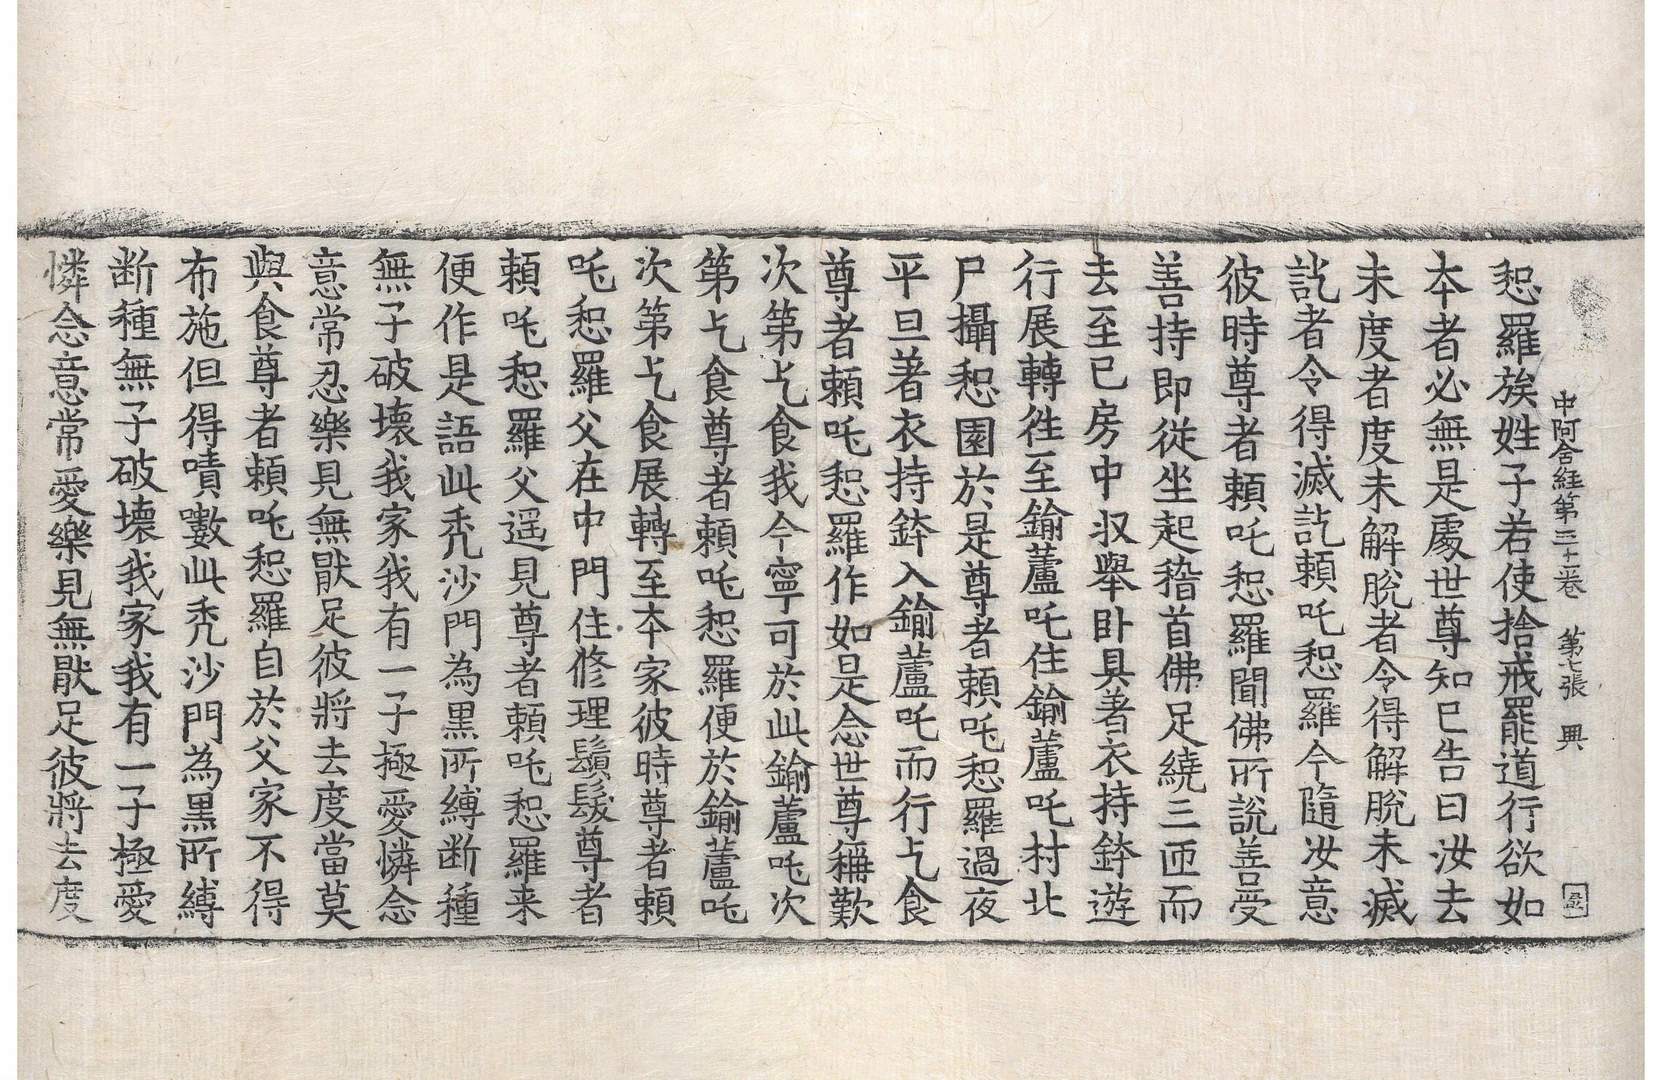 中阿含経第三十一卷 第七張 興
恕羅族姓子若使捨戒罷道行欲如
本者必無是處世尊知已告曰汝去
未度者度未解脫者令得解脫未滅
訖者令得滅訖頼吒恕羅今隨汝意
彼時尊者頼吒恕羅聞佛所說善受
善持即從坐起稽首佛足繞三匝而
去至已房中収舉卧具著衣持鉢遊
行展轉往至鍮蘆吒住鍮蘆吒村北
尸攝惒園於是尊者頼吒恕羅過夜
平旦著衣持鉢入鍮蘆吒而行乞食
尊者頼吒恕羅作如是念世尊稱歎
次第乞食我今寧可於此鍮蘆吒次
第乞食尊者頼吒恕羅便於鍮蘆吒
次第乞食展轉至本家彼時尊者頼
吒恕羅父在中門住修理鬚髮尊者
頼吒恕羅父遥見尊者頼吒恕羅来
便作是語此秃沙門為黒所縛断種
無子破壞我家我有一子極愛憐念
意常忍樂見無猒足彼將去度當莫
與食尊者頼吒恕羅自於父家不得
布施但得嘖數此秃沙門為黒所縛
断種無子破壞我家我有一子極愛
憐念意常愛樂見無猒足彼將去度